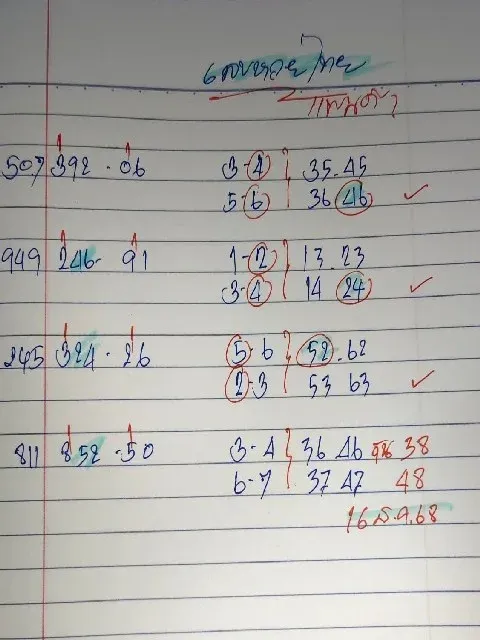 507 392 - 06 3-4 35-45
5-6 36 46 ✓
949 246- 91 1-2 13.23
3-4 14 24 ✓
245 324 - 26 5-6 52.62
2-3 53 63 ✓
811 852 - 50 3-4 36 46 38
6-7 37 47 48
16 ส.ค.68